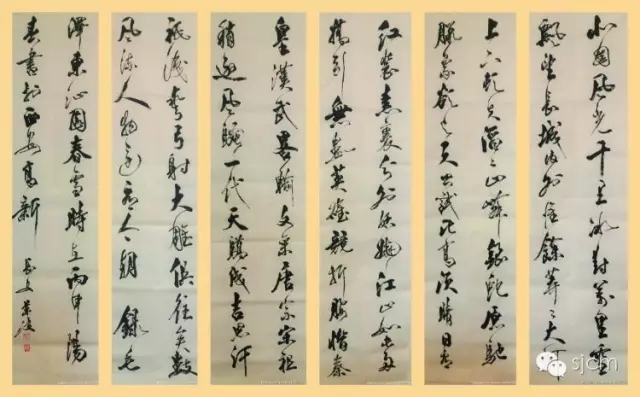 北國風光千里冰封萬里雪
飄望長城内外惟餘莽莽大河
上下頓失滔滔山舞銀蛇原馳
臘象欲與天公試比高須晴日看
紅裝素裹分外妖嬈江山如此多
嬌引無數英雄競折腰惜秦
皇漢武略輸文采唐宗宋祖
稍遜風騷一代天驕成吉思汗
祇識彎弓射大雕俱往矣數
風流人物還看今朝 錄毛
澤東沁園春雪時在丙申陽
春書於西安高新
sjcm